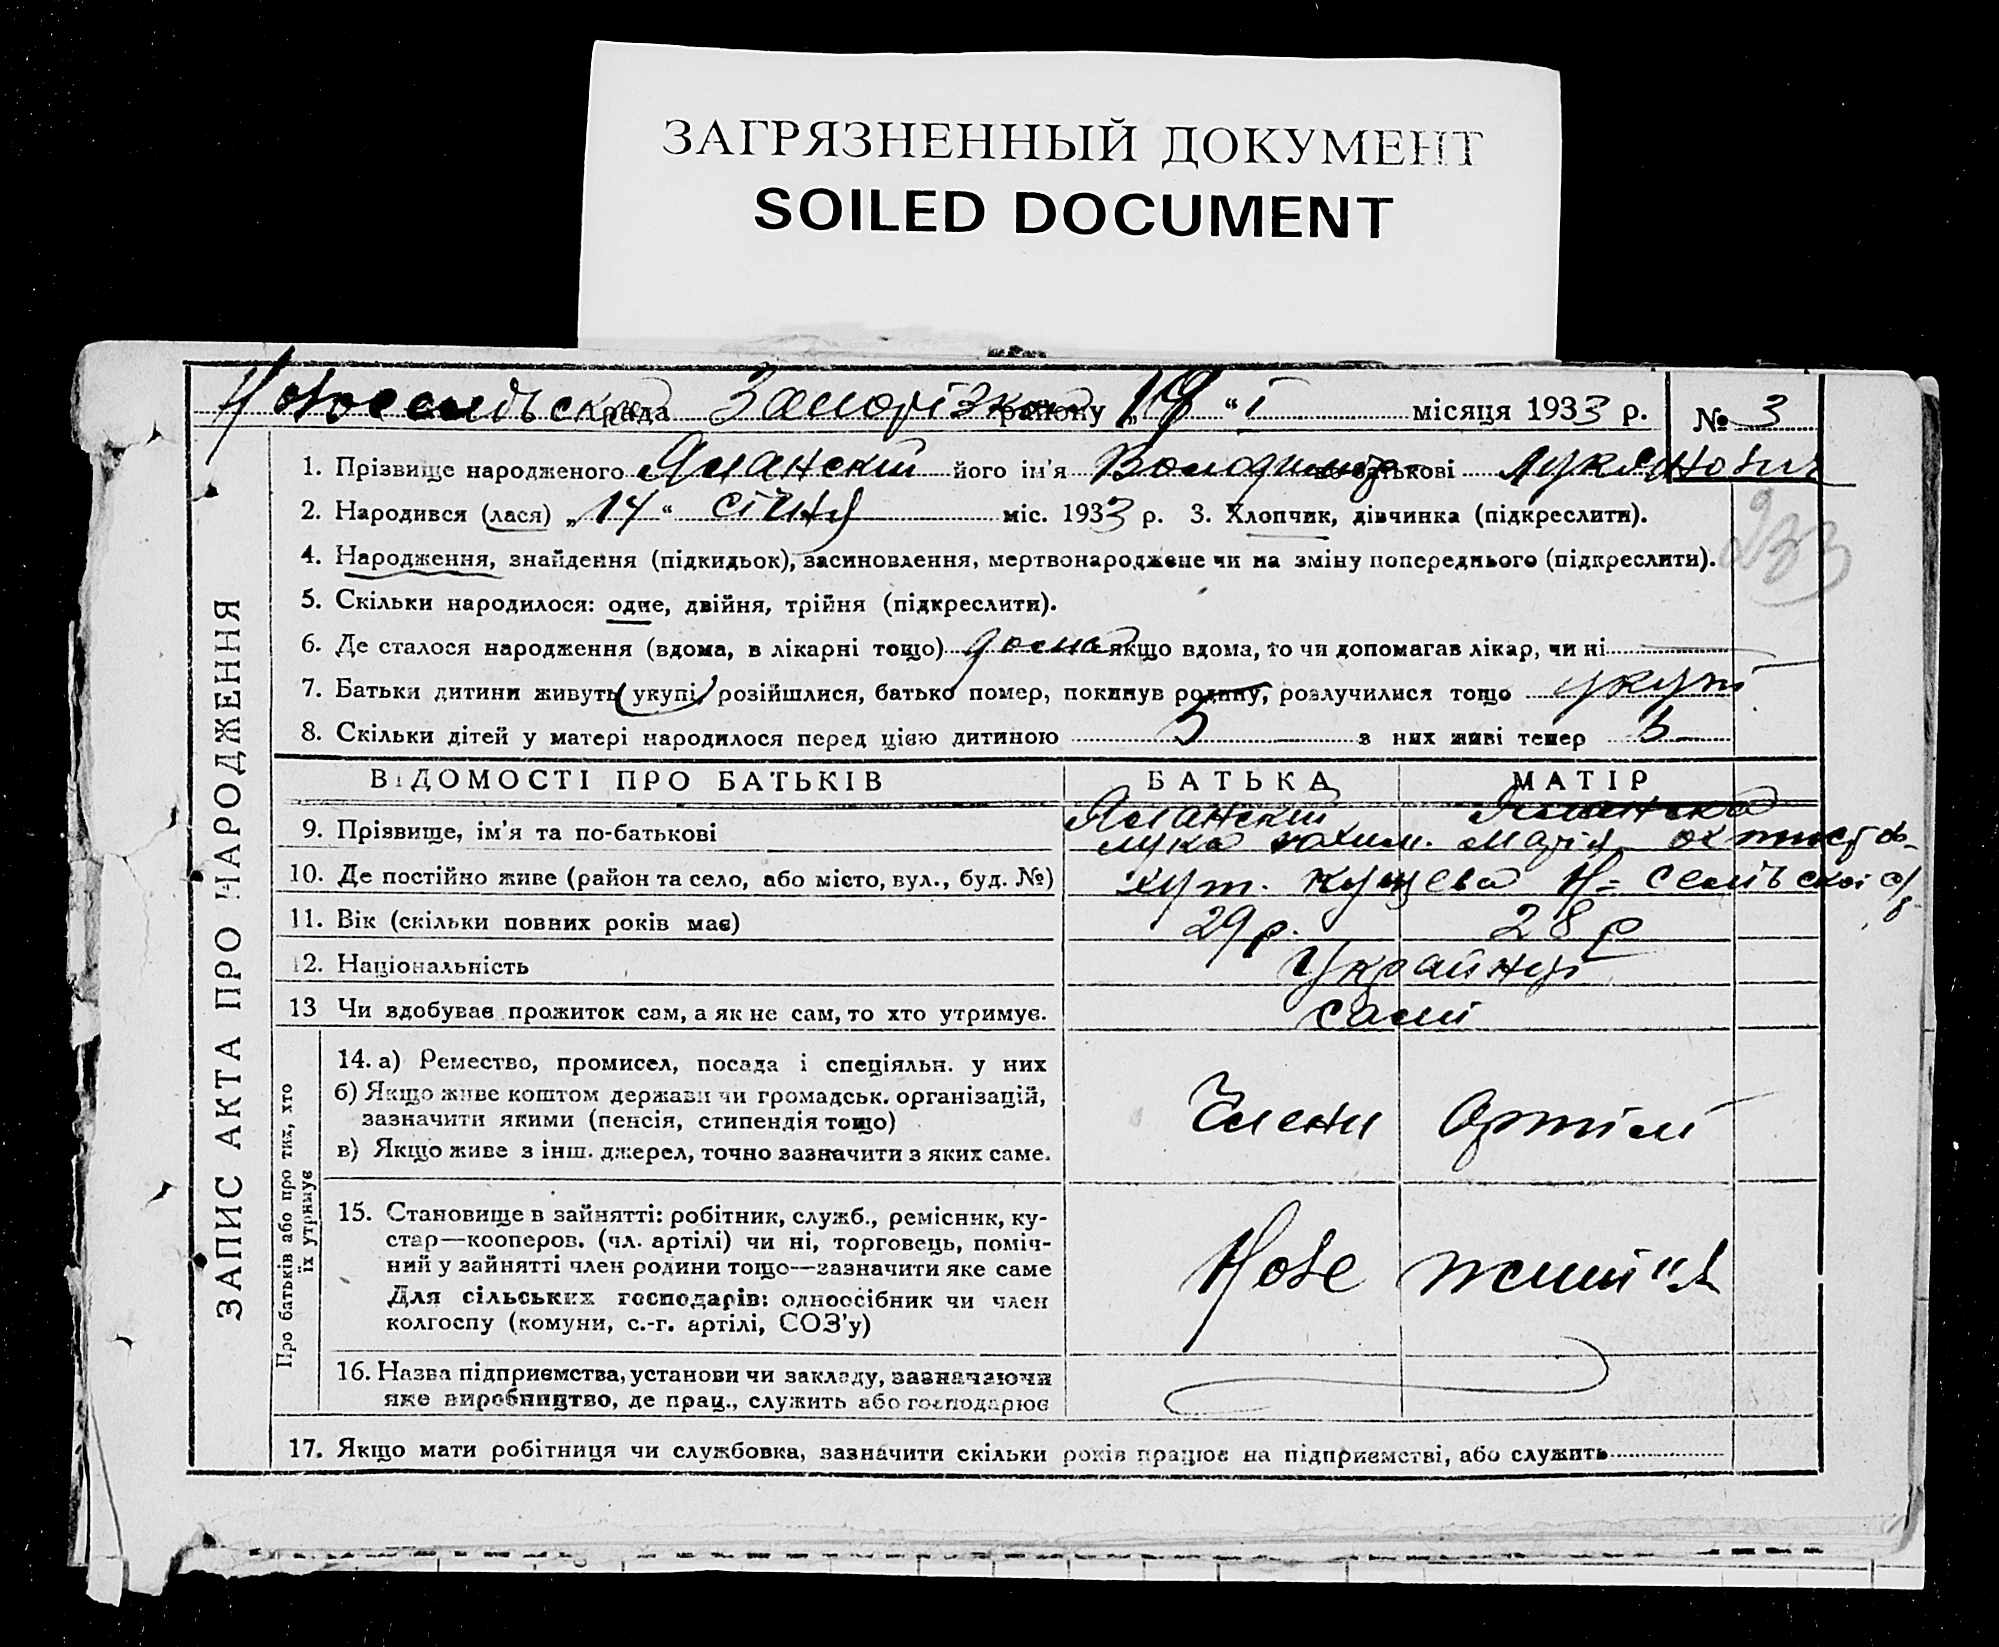 ЗАГРЯЗНЕННЫЙ ДОКУМЕНТ
SOILED DOCUMENT
рада Запорізького району „18“ І місяця 1933 р. № 3
ЗАПИС АКТА ПРО НАРОДЖЕННЯ
1. Прізвище народженого Яланский його ім'я Володимир по батькові Лукянович
2. Народився (лася) „14“ січня міс. 1933 р. 3. Хлопчик, дівчинка (підкреслити).
233
4. Народження, знайдення (підкидьок), засиновлення, мертвонароджене чи на зміну попереднього (підкреслити).
5. Скільки народилося: одне, двійня, трійня (підкреслити).
6. Де сталося народження (вдома, в лікарні тощо) дома якщо вдома, то чи допомагав лікар, чи ні
7. Батьки дитини живуть укупі, розійшлися, батько помер, покинув родину, розлучилися тощо укупі
8. Скільки дітей у матері народилося перед цією дитиною 3 з них живі тепер 3
ВІДОМОСТІ ПРО БАТЬКІВ БАТЬКА МАТІР
9. Прізвище, ім'я та по-батькові Яланский Яланська
Лука Марія
10. Де постійно живе (район та село, або місто, вул., буд. №) хут. Н=
11. Вік (скільки повних років має) 29 р. 28 р
12. Національність Українці
13 Чи здобуває прожиток сам, а як не сам, то хто утримує. сами
Про батьків або про тих, хто
їх утримує
14. а) Ремество, промисел, посада і спеціяльн. у них
б) Якщо живе коштом держави чи громадськ. організацій,
зазначити якими (пенсія, стипендія тощо)
в) Якщо живе з інш. джерел, точно зазначити з яких саме.
Члени Артілі
15. Становище в зайнятті: робітник, служб., ремісник, ку-
стар—кооперов. (чл. артілі) чи ні, торговець, поміч-
ний у зайнятті член родини тощо—зазначити яке саме
Для сільських господарів: одноосібник чи член
колгоспу (комуни, с.-г. артілі, СОЗ'у)
Нове життя
16. Назва підприємства, установи чи закладу, зазначаючи
яке виробництво, де прац., служить або господарює
17. Якщо мати робітниця чи службовка, зазначити скільки років працює на підприємстві, або служить